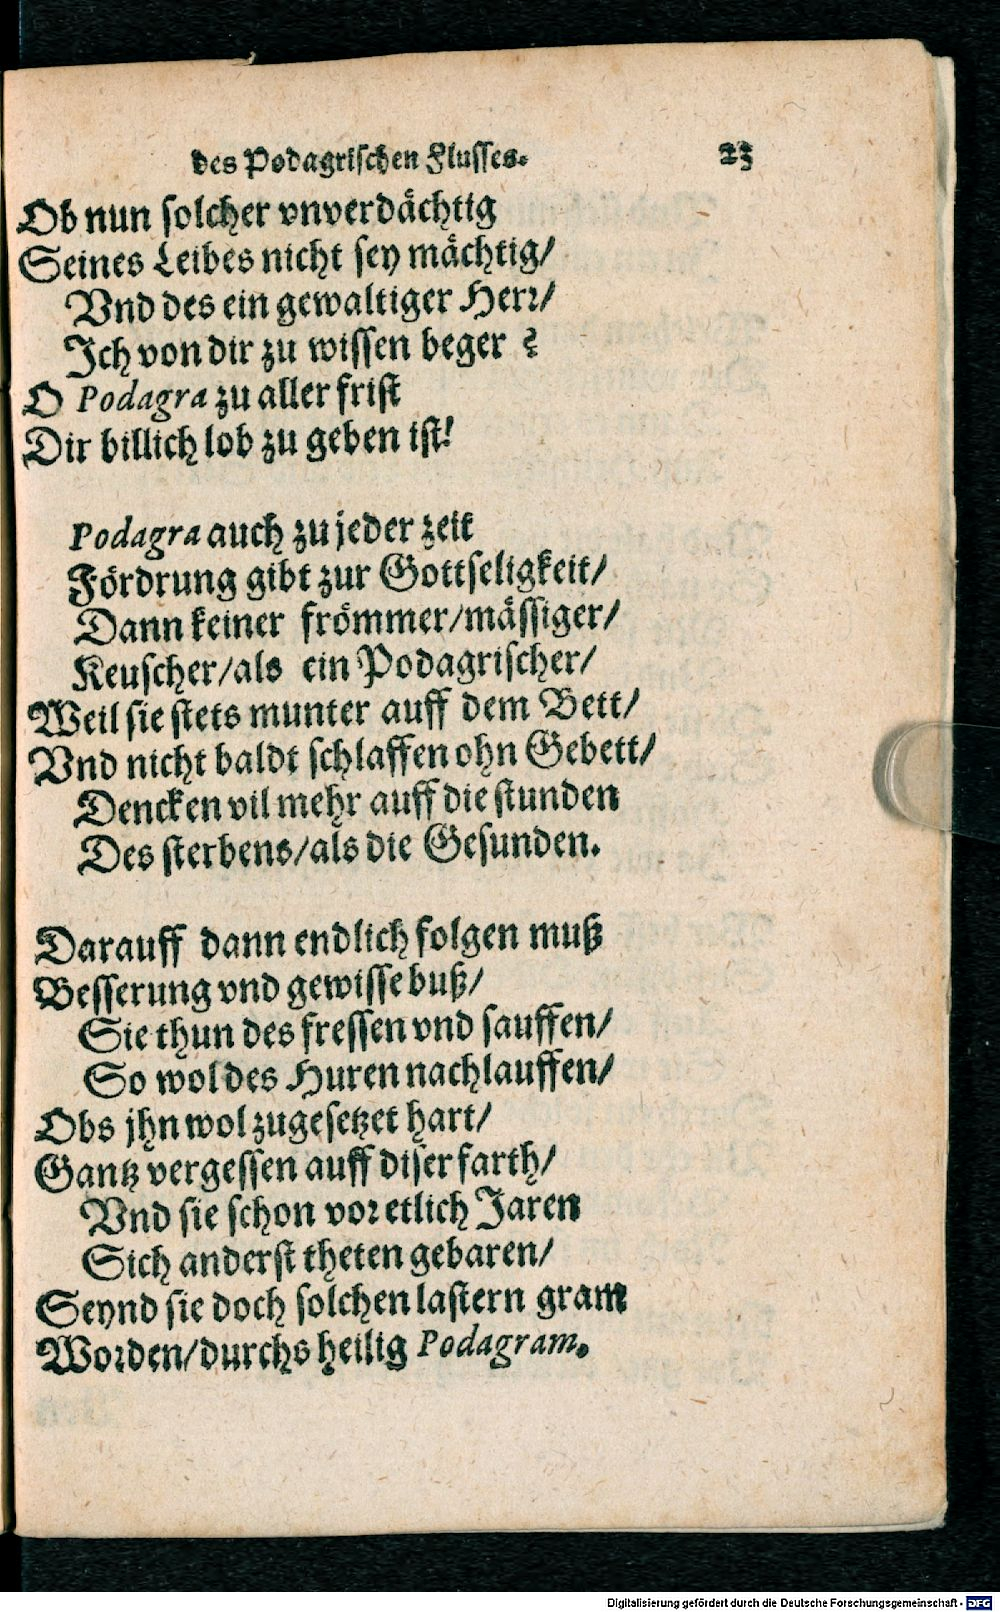 des Podagrischen Flusses. 23
Ob nun solcher vnverdächtig
Seines Leibes nicht sey mächtig/
Vnd des ein gewaltiger Herr/
Jch von dir zu wissen beger?
O Podagra zu aller frist
Dir billich lob zu geben ist!
Podagra auch zu jeder zeit
Fördrung gibt zur Gottseligkeit/
Dann keiner frömmer/mässiger/
Keuscher/als ein Podagrischer/
Weil sie stets munter auff dem Bett/
Vnd nicht baldt schlaffen ohn Gebett/
Dencken vil mehr auff die stunden
Des sterbens/als die Gesunden.
Darauff dann endlich folgen muß
Besserung vnd gewisse buß/
Sie thun des fressen vnd sauffen/
So wol des Huren nachlauffen/
Obs jhn wol zugesetzet hart/
Gantz vergessen auff diser farth/
Vnd sie schon vor etlich Jaren
Sich anderst theten gebaren/
Seynd sie doch solchen lastern gram
Worden/durchs heilig Podagram.
Digitalisierung gefördert durch die Deutsche Forschungsgemeinschaft - DFG